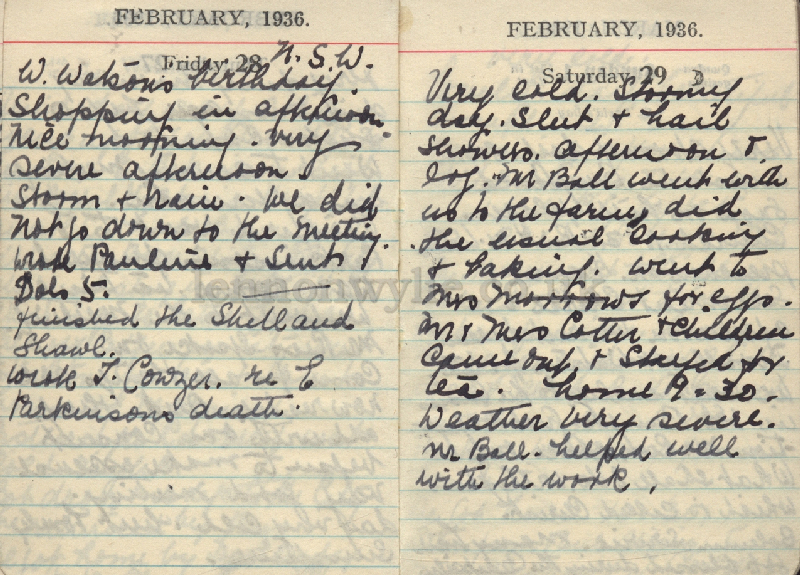 FEBRUARY, 1936.
Friday 28 N.S.W.
W. Watsons birthday.
Shopping in afternoon
nice morning. very
severe afternoon
Storm + rain. We did
not go down to the meeting.
wrote Pauline + sent
Dols 5.
finished the Shetland
Shawl.
wrote T. Cowzer. re E
Parkinsons death.
FEBRUARY, 1936.
Saturday 29
Very cold. Stormy
day. Sleet + hail
showers. afternoon
fog. Mr Ball went with
us to the farm, did
the usual cooking
+ baking. went to
Mrs Morrows for eggs.
Mr + Mrs Cotter + Children
Came out, + stayed for
tea. home 9-30.
Weather very severe.
Mr Ball. helped well
with the work.
lennonwylie.co.uk